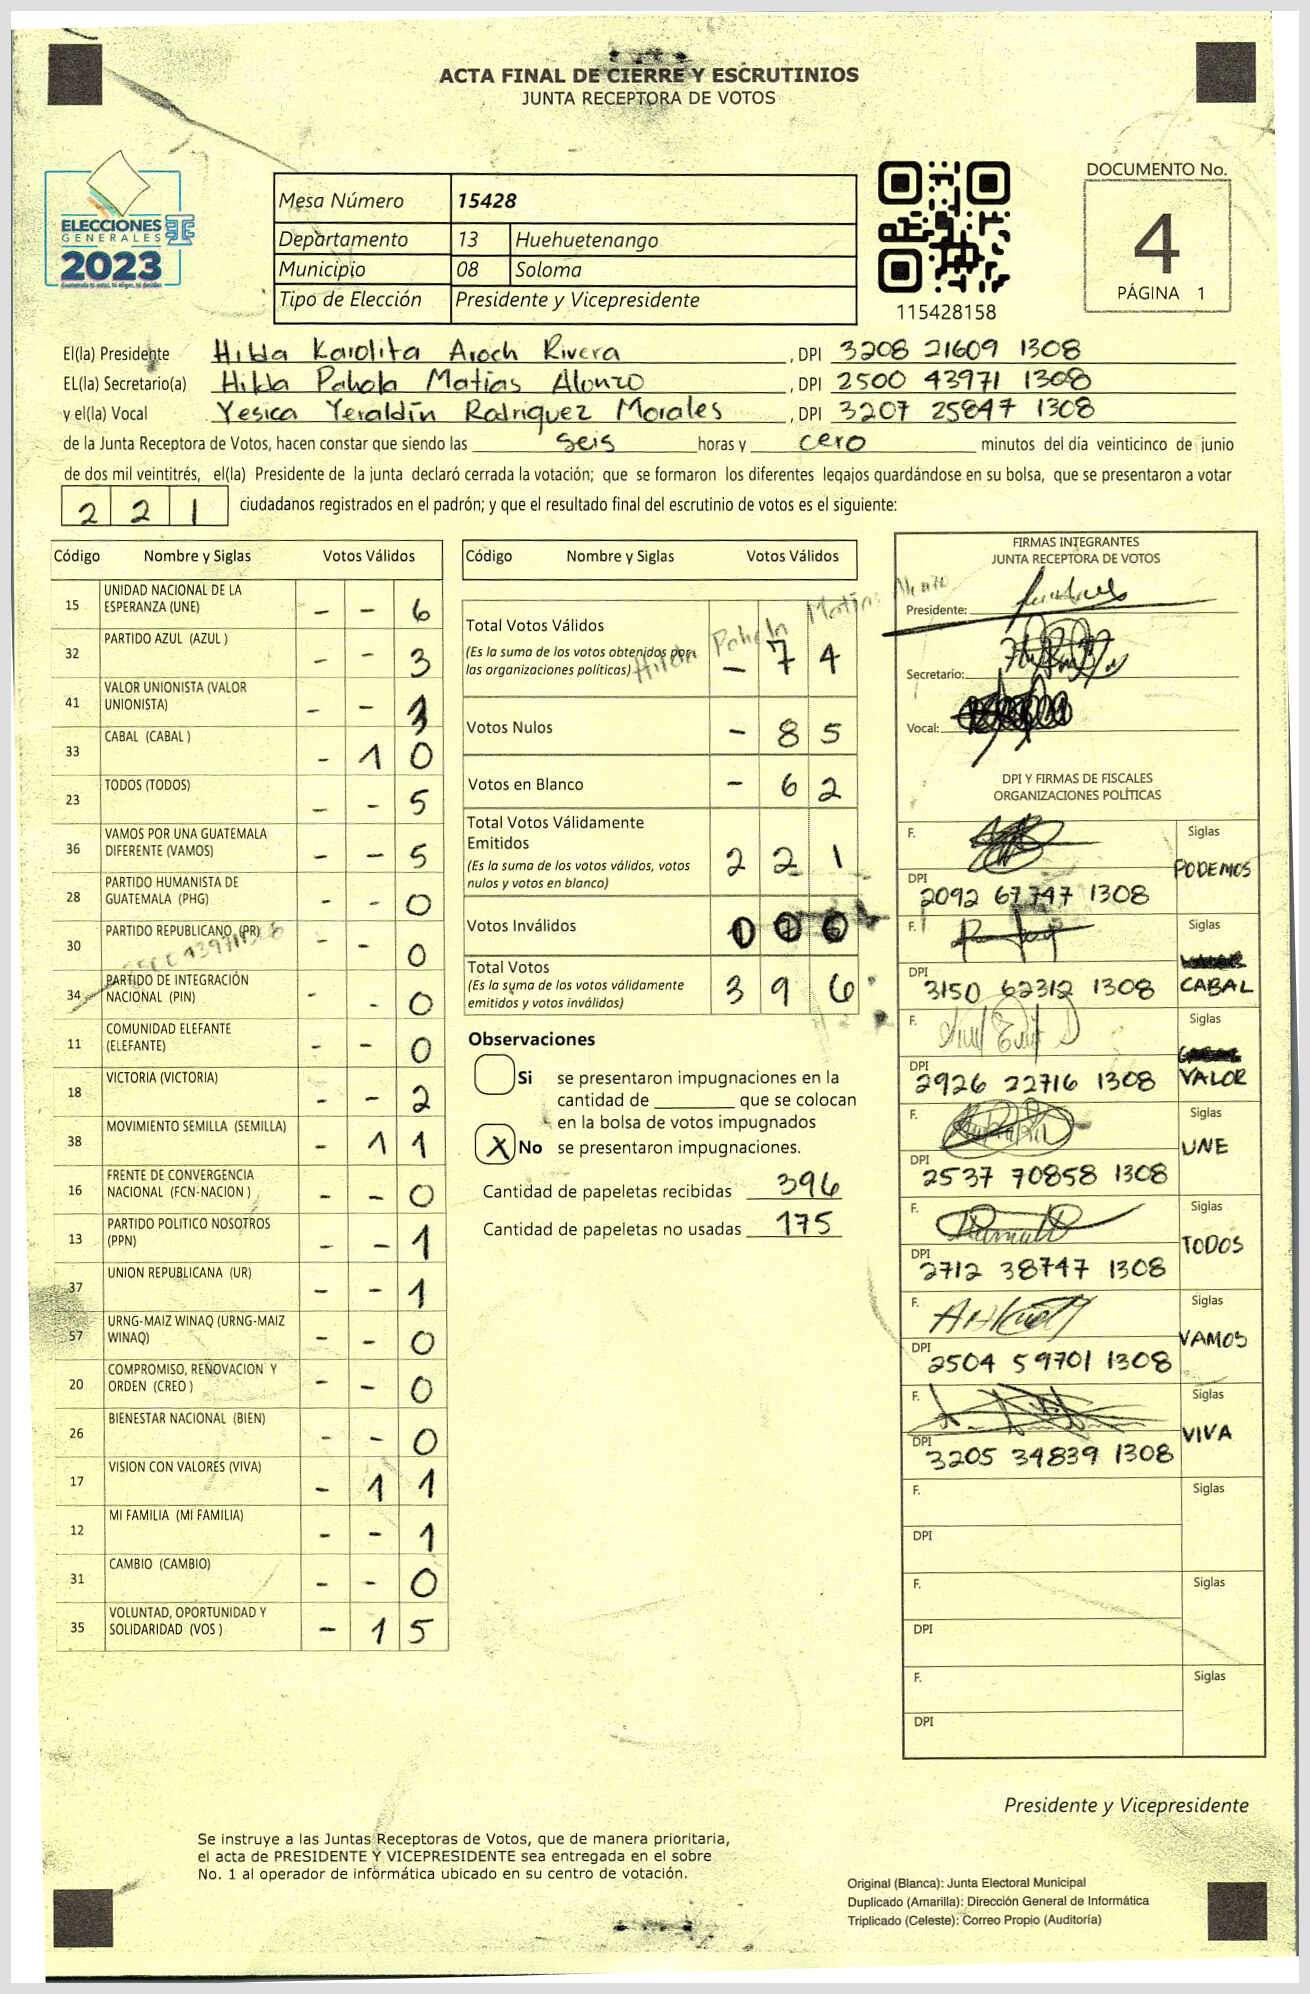 ACTA FINAL DE CIERRE Y ESCRUTINIOS
JUNTA RECEPTORA DE VOTOS
ELECCIONES
GENERALES
2023
Mesa Número 15428
Departamento 13 Huehuetenango
Municipio 08 Soloma
Tipo de Elección Presidente y Vicepresidente
115428158
DOCUMENTO No.
4
PÁGINA 1
El(la) Presidente Hilda Karolita Aroch Rivera, DPI 3208 21609 1308
EL(la) Secretario(a) Hilda Pahola Matias Alonzo, DPI 2500 43971 1308
y el(la) Vocal Yesica Yeraldín Rodriguez Morales, DPI 3207 25847 1308
de la Junta Receptora de Votos, hacen constar que siendo las seis horas y cero minutos del día veinticinco de junio
de dos mil veintitrés, el(la) Presidente de la junta declaró cerrada la votación; que se formaron los diferentes legajos guardándose en su bolsa, que se presentaron a votar
2 2 1 ciudadanos registrados en el padrón; y que el resultado final del escrutinio de votos es el siguiente:
Código Nombre y Siglas Votos Válidos
15 UNIDAD NACIONAL DE LA ESPERANZA (UNE) - - 6
32 PARTIDO AZUL (AZUL ) - - 3
41 VALOR UNIONISTA (VALOR UNIONISTA) - -
33 CABAL (CABAL ) - 1 0
23 TODOS (TODOS) - - 5
36 VAMOS POR UNA GUATEMALA DIFERENTE (VAMOS) - - 5
28 PARTIDO HUMANISTA DE GUATEMALA (PHG) - - 0
30 PARTIDO REPUBLICANO (PR) - - 0
34 PARTIDO DE INTEGRACIÓN NACIONAL (PIN) - - 0
11 COMUNIDAD ELEFANTE (ELEFANTE) - - 0
18 VICTORIA (VICTORIA) - - 2
38 MOVIMIENTO SEMILLA (SEMILLA) - 1 1
16 FRENTE DE CONVERGENCIA NACIONAL (FCN-NACION ) - - 0
13 PARTIDO POLITICO NOSOTROS (PPN) - - 1
37 UNION REPUBLICANA (UR) - - 1
57 URNG-MAIZ WINAQ (URNG-MAIZ WINAQ) - - 0
20 COMPROMISO, RENOVACION Y ORDEN (CREO ) - - 0
26 BIENESTAR NACIONAL (BIEN) - - 0
17 VISION CON VALORES (VIVA) - 1 1
12 MI FAMILIA (MI FAMILIA) - - 1
31 CAMBIO (CAMBIO) - - 0
35 VOLUNTAD, OPORTUNIDAD Y SOLIDARIDAD (VOS ) - 1 5
Código Nombre y Siglas Votos Válidos
Pahola Matias Alonzo
Total Votos Válidos - 7 4
(Es la suma de los votos obtenidos por
las organizaciones políticas)
Votos Nulos - 8 5
Votos en Blanco - 6 2
Total Votos Válidamente
Emitidos 2 2 1
(Es la suma de los votos válidos, votos
nulos y votos en blanco)
Votos Inválidos 0 0 0
Total Votos 3 9 6
(Es la suma de los votos válidamente
emitidos y votos inválidos)
Observaciones
Si se presentaron impugnaciones en la
cantidad de ________ que se colocan
en la bolsa de votos impugnados
X No se presentaron impugnaciones.
Cantidad de papeletas recibidas 396
Cantidad de papeletas no usadas 175
FIRMAS INTEGRANTES
JUNTA RECEPTORA DE VOTOS
Presidente:
Secretario:
Vocal:
DPI Y FIRMAS DE FISCALES
ORGANIZACIONES POLÍTICAS
F. Siglas
PODEMOS
DPI 2092 67747 1308
F. Siglas
DPI 3150 62312 1308 CABAL
F. Siglas
DPI 2926 22716 1308 VALOR
F. Siglas
UNE
DPI 2537 70858 1308
F. Siglas
TODOS
DPI 2712 38747 1308
F. Siglas
VAMOS
DPI 2504 59701 1308
F. Siglas
VIVA
DPI 3205 34839 1308
F. Siglas
DPI
F. Siglas
DPI
F. Siglas
DPI
Presidente y Vicepresidente
Se instruye a las Juntas Receptoras de Votos, que de manera prioritaria,
el acta de PRESIDENTE Y VICEPRESIDENTE sea entregada en el sobre
No. 1 al operador de informática ubicado en su centro de votación.
Original (Blanca): Junta Electoral Municipal
Duplicado (Amarilla): Dirección General de Informática
Triplicado (Celeste): Correo Propio (Auditoría)